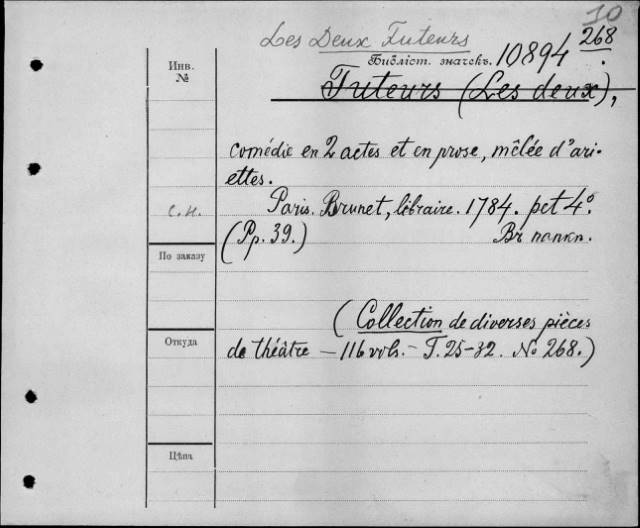 10
Les Deux Tuteurs
Библіот. значекъ. 10894 268.
Инв. №
Tuteurs (Les deux),
comédie en 2 actes et en prose, mêlée d'ari-
ettes.
С.И.
Paris. Brunet, libraire. 1784. pet 4º.
(Pp. 39.)
Br папкп.
По заказу
(Collection de diverses pièces
Откуда
de théâtre — 116 vols. — T. 25-32. № 268.)
Цѣна